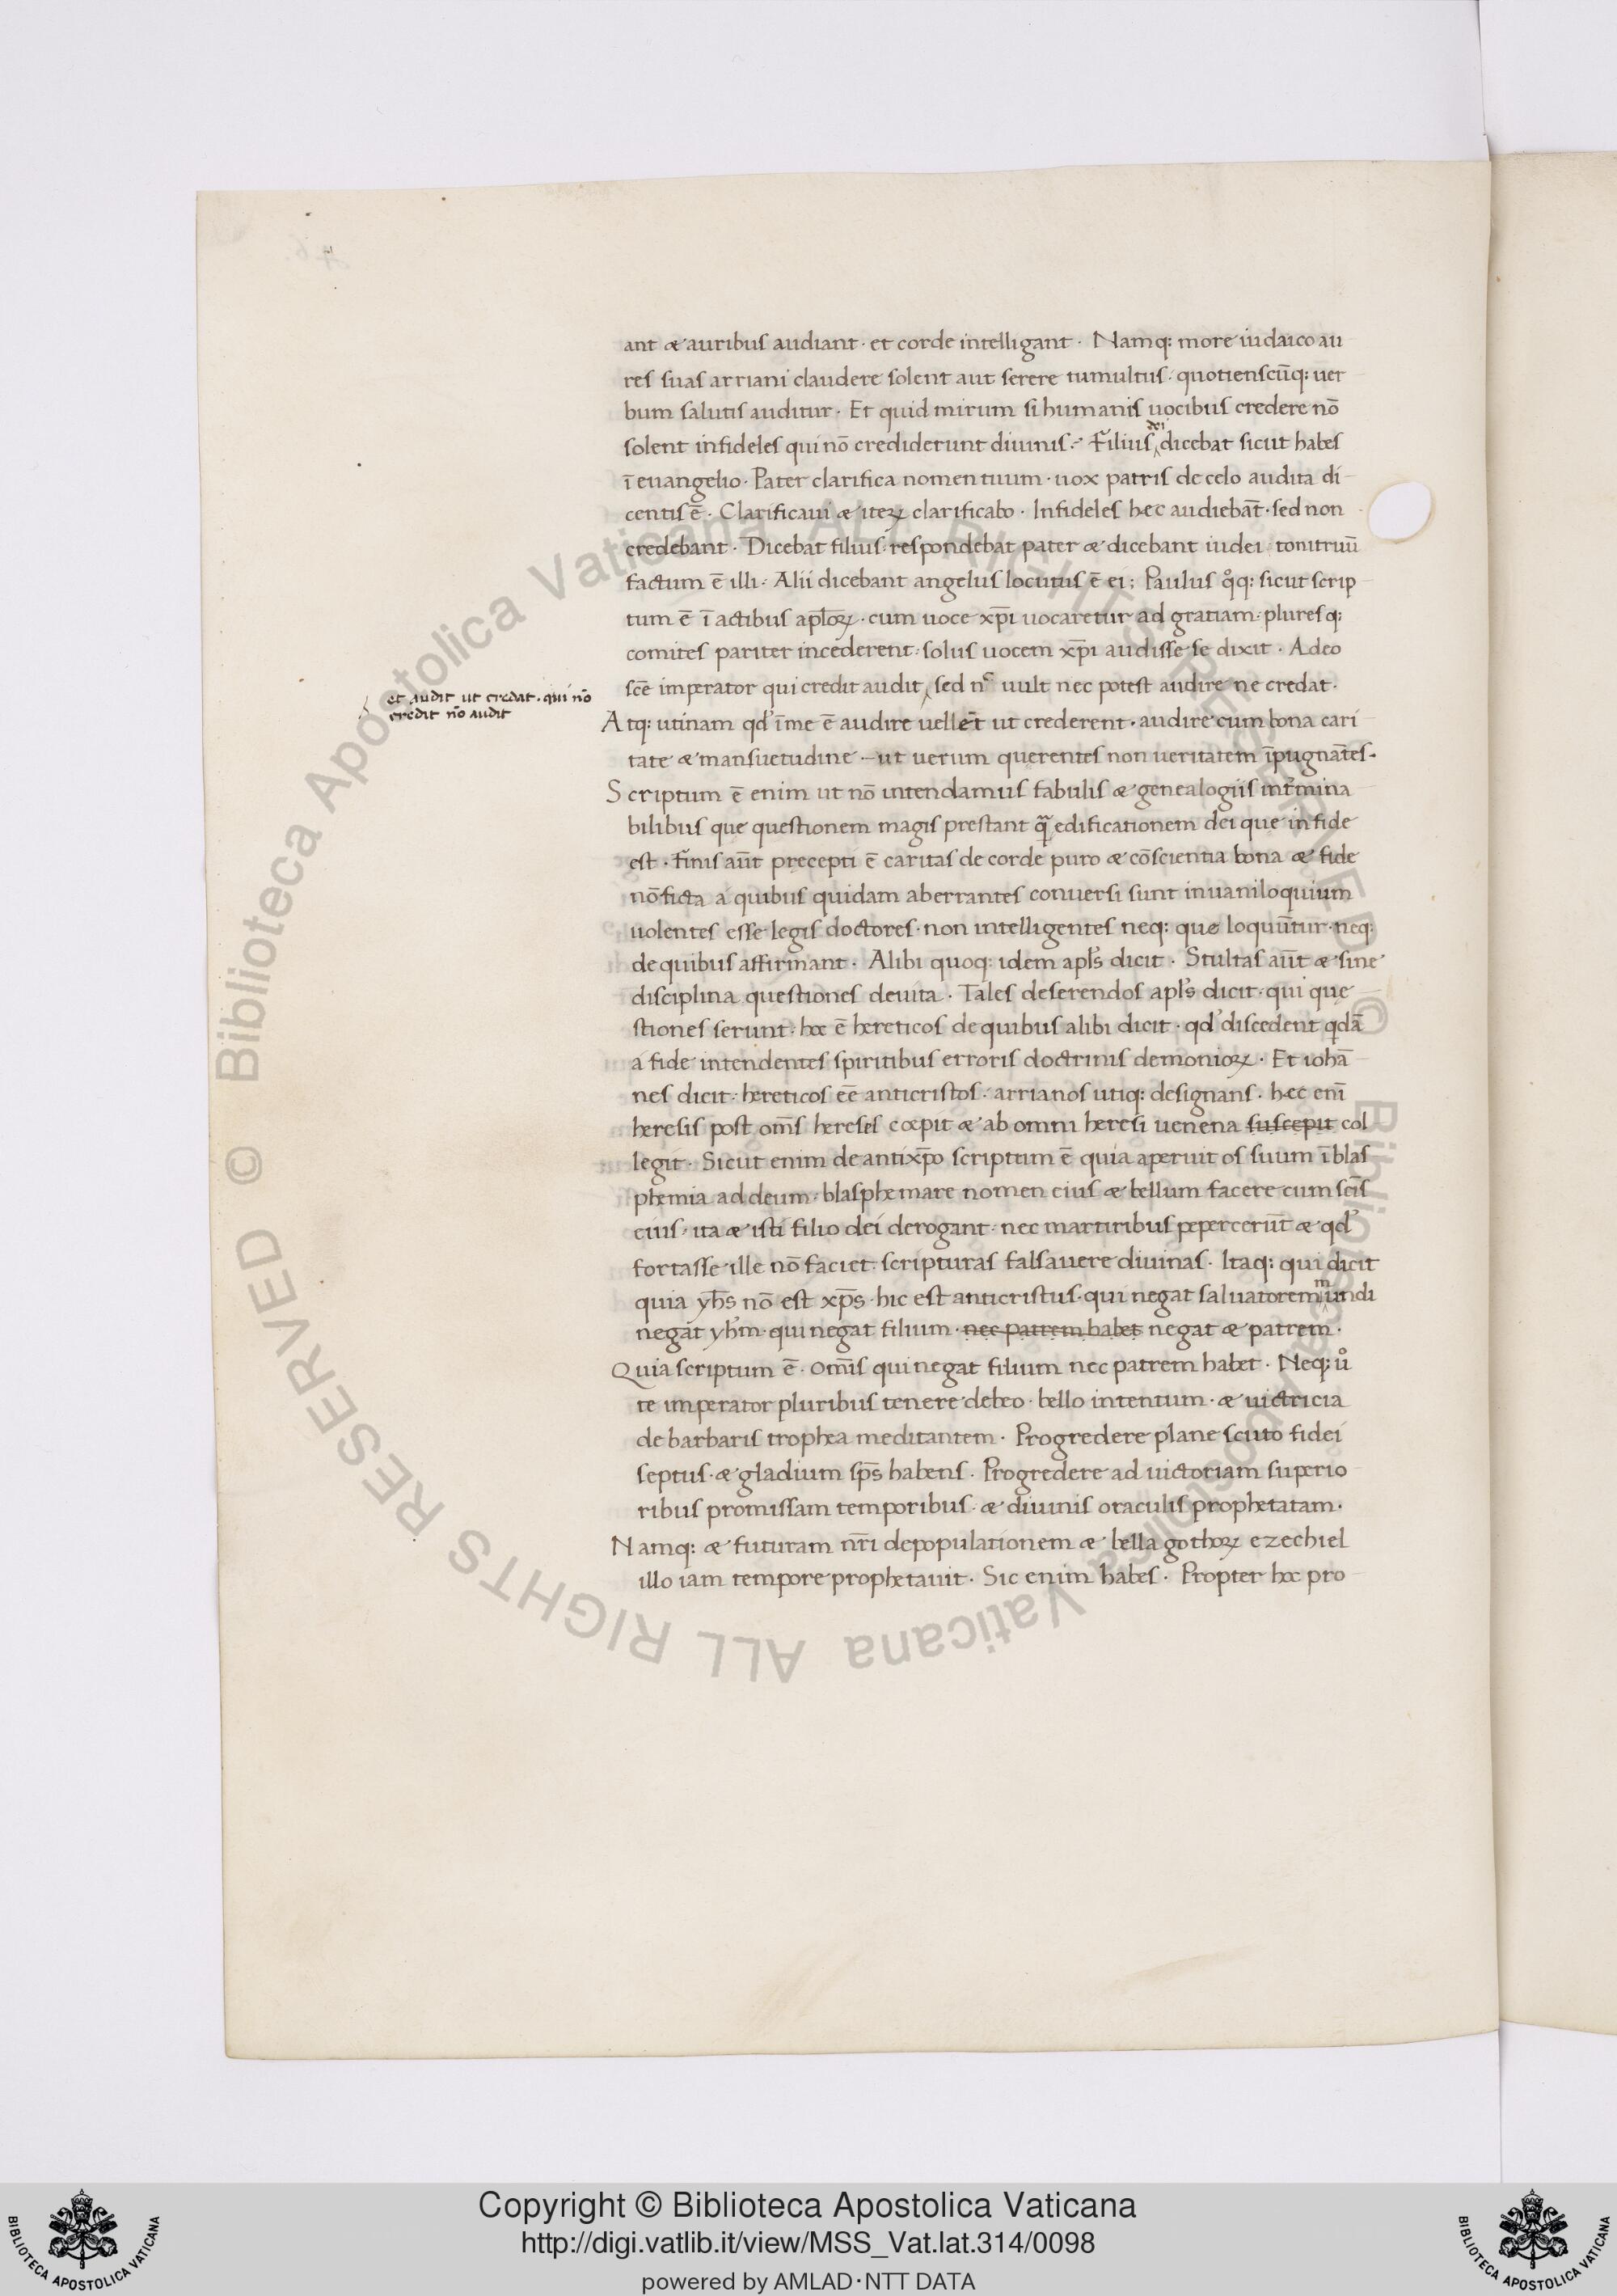 ant & auribus audiant · et corde intelligant · Namq: more iudaico au
res suas arriani claudere solent aut serere tumultus · quotienscūq: uer
bum salutis auditur · Et quid mirum si humanis uocibus credere nō
solent infideles qui nō crediderunt diuinis · Filius dei dicebat sicut habes
ī euangelio · Pater clarifica nomen tuum · uox patris de celo audita di
centis ē · Clarificaui & iteꝝ clarificabo · Infideles hęc audiebāt · sed non
credebant · Dicebat filius · respondebat pater & dicebant iudei · tonitruū
factum ē illi · Alii dicebant angelus locutus ē ei ; Paulus qͦq: sicut scrip
tum ē ī actibus apl̄oꝝ · cum uoce xp̄i uocaretur ad gratiam · pluresq:
comites pariter incederent · solus uocem xp̄i audisse se dixit · Adeo
sc̄e imperator qui credit audit sed nͨ uult nec potest audire ne credat ·
et audit ut credat · qui nō
credit nō audit
Atq: utinam qd' īme ē audire uellēt ut crederent · audire cum bona cari
tate & mansuetudine – ut uerum querentes non ueritatem īpugnātes ·
Scriptum ē enim ut nō intendamus fabulis & genealogiis int̄mina
bilibus quę questionem magis pręstant q̄ edificationem dei que in fide
est · finis aūt pręcepti ē caritas de corde puro & cōscientia bona & fide
nō ficta a quibus quidam aberrantes conuersi sunt in uaniloquium
uolentes esse legis doctores · non intelligentes neq: quę loquūtur · neq:
de quibus affirmant · Alibi quoq: idem apl's dicit · Stultas aūt & sine
disciplina questiones deuita · Tales deserendos apl's dicit · qui que
stiones serunt · hoc ē hereticos de quibus alibi dicit · qd' discedent qdā
a fide intendentes spiritibus erroris doctrinis demonioꝝ · Et iohā
nes dicit · hereticos eē anticristos · arrianos utiq: designans · hęc enī
heresis post om̄s hereses cœpit & ab omni heresi uenena suscepit col
legit · Sicut enim de antixp̄o scriptum ē quia aperuit os suum ī blas
phemia ad deum · blasphemare nomen eius & bellum facere cum sc̄is
eius · ita & isti filio dei derogant · nec martiribus pepercerūt & qd'
fortasse ille nō faciet · scripturas falsauere diuinas · Itaq: qui dicit
quia yh̄s nō est xp̄s · hic est anticristus · qui negat saluatorem mundi
negat yh̄m · qui negat filium · nec patrem habet negat & patrem ·
Quia scriptum ē · om̄is qui negat filium nec patrem habet · Neq: uͦ
te imperator pluribus tenere debeo · bello intentum · & uictricia
de barbaris trophea meditantem · Progredere plane scuto fidei
septus · & gladium sp̄s habens · Progredere ad uictoriam superio
ribus promissam temporibus & diuinis oraculis prophetatam ·
Namq: & futuram nr̄i depopulationem & bella gothoꝝ ezechiel
illo iam tempore prophetauit · Sic enim habes · Propter hoc pro
© Biblioteca Apostolica Vaticana ALL RIGHTS RESERVED © Biblioteca Apostolica Vaticana ALL RIGHTS RESERVED
Copyright © Biblioteca Apostolica Vaticana
http://digi.vatlib.it/view/MSS_Vat.lat.314/0098
powered by AMLAD·NTT DATA
BIBLIOTECA APOSTOLICA VATICANA
BIBLIOTECA APOSTOLICA VATICANA